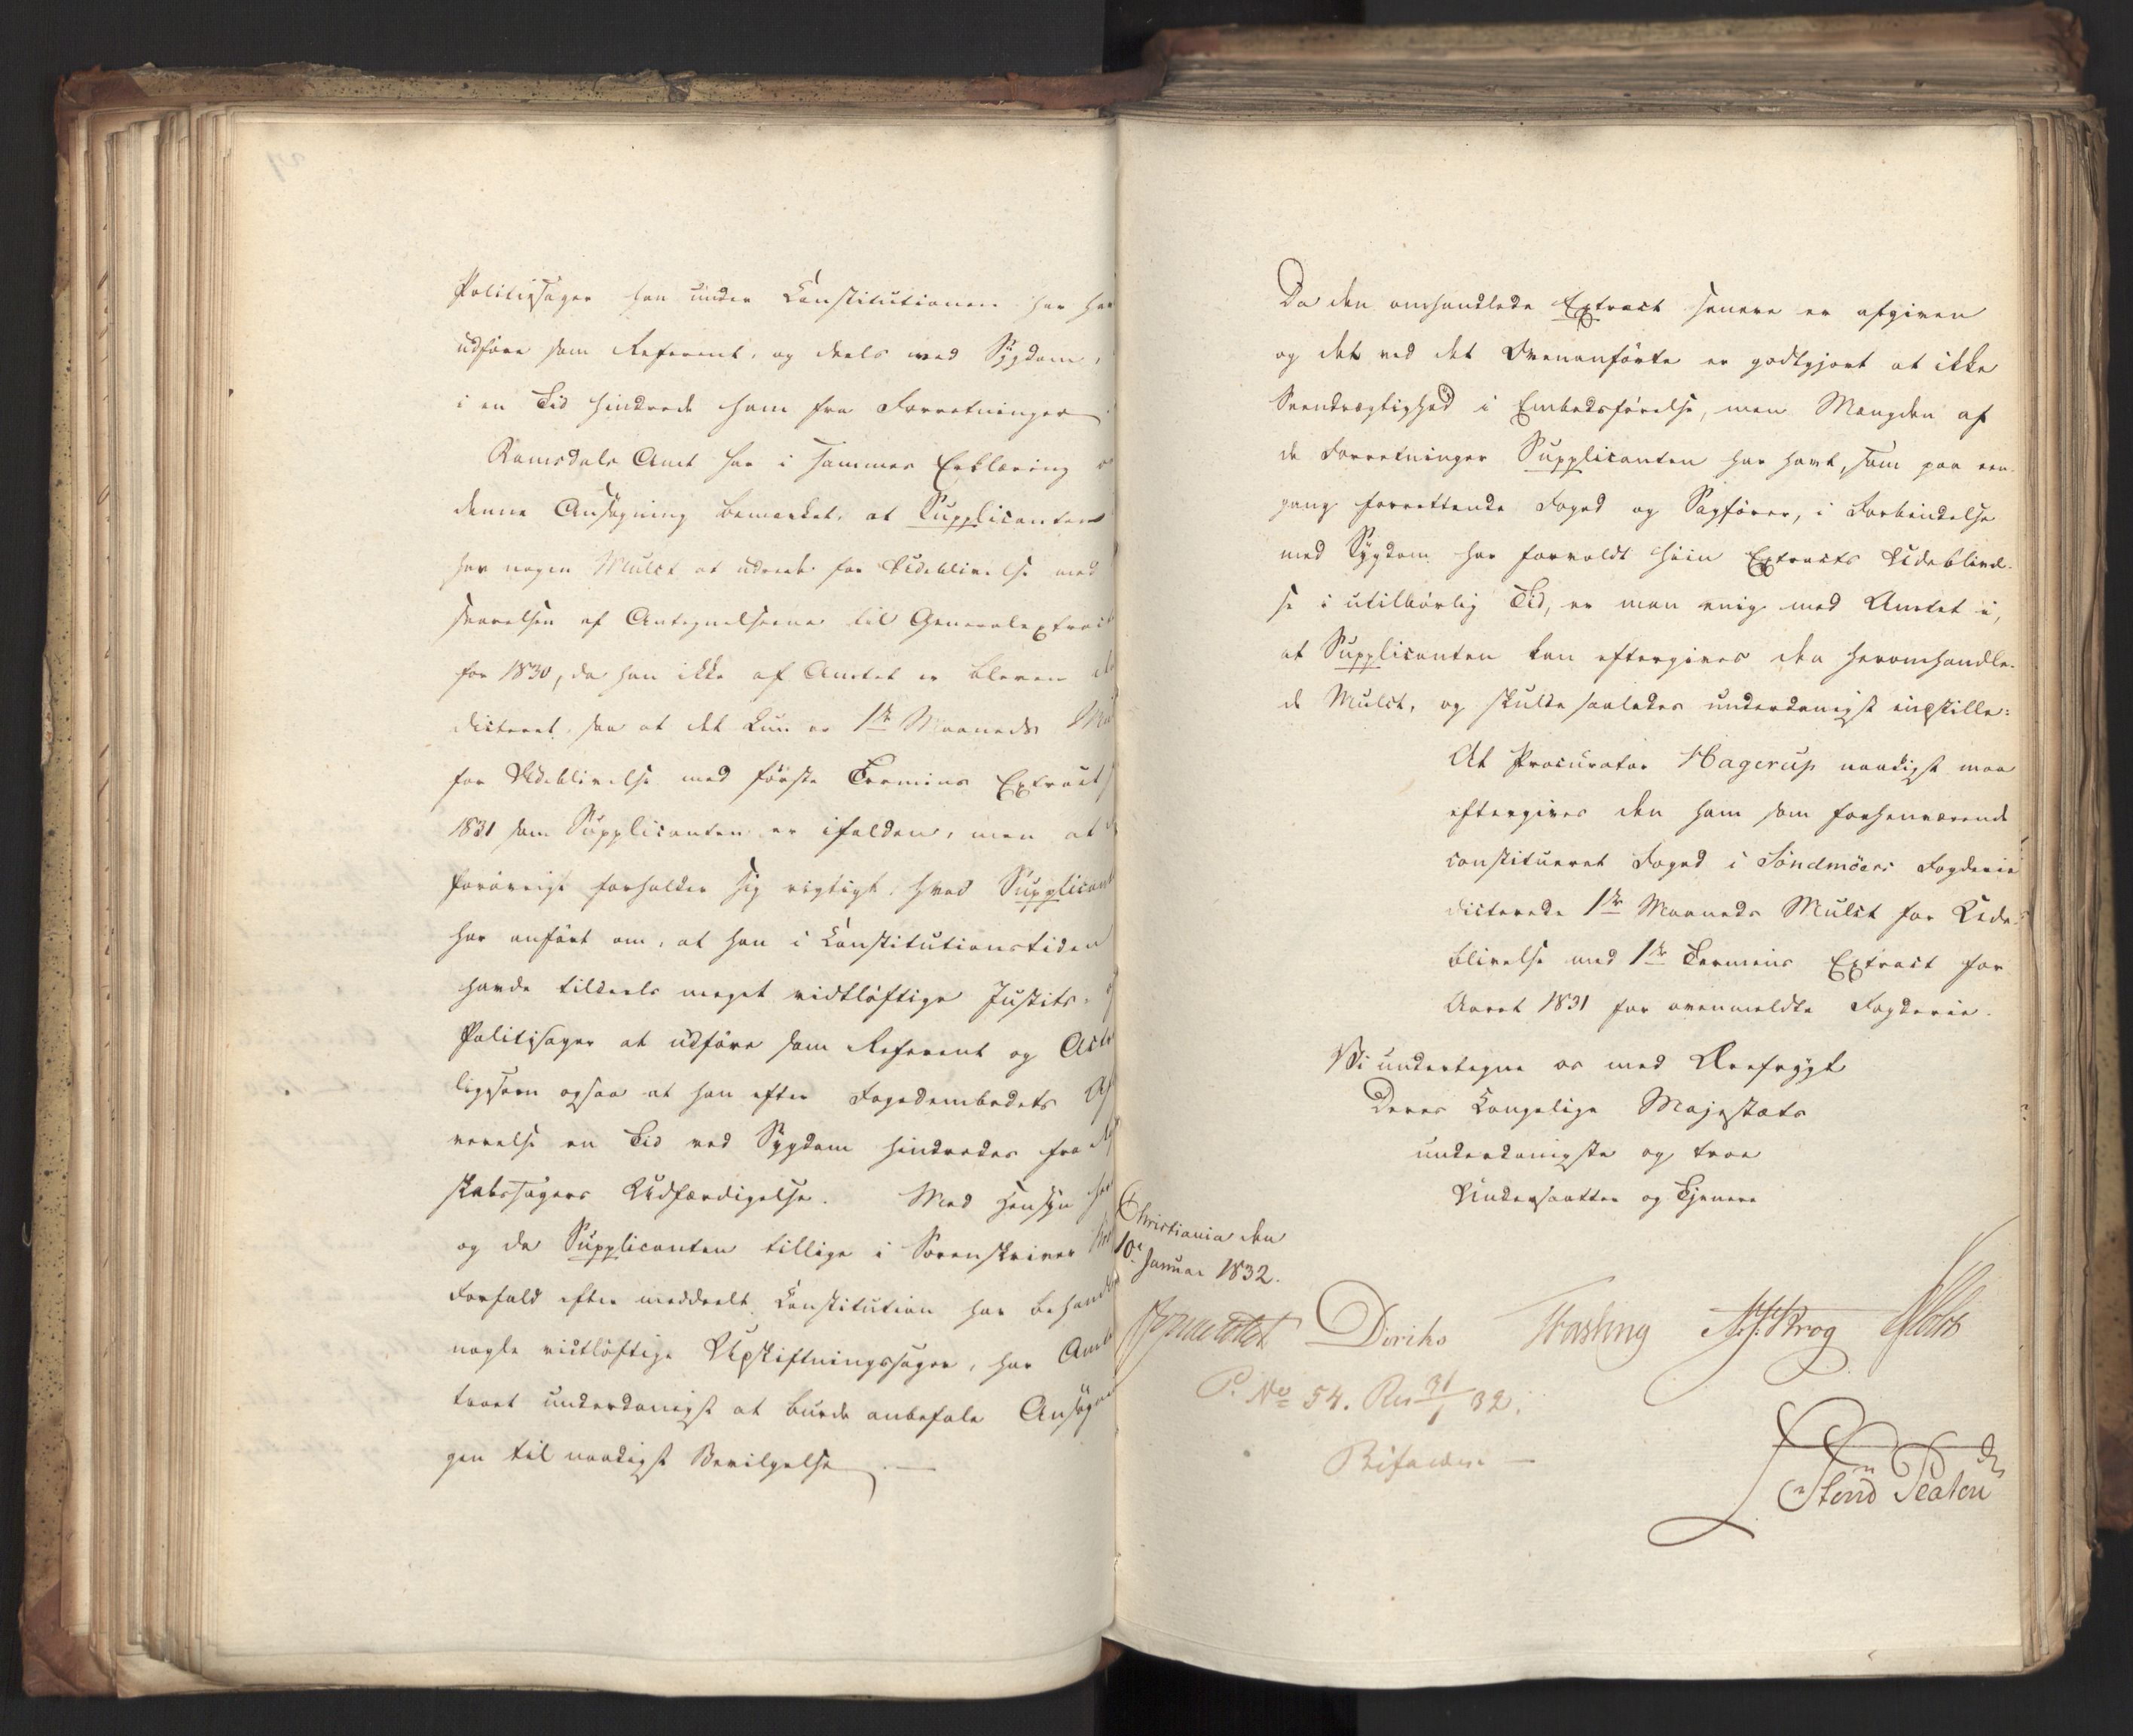 Politiesager han under Constitutionen har hav
udføre som Referent, og deels med Sygdom,
i en Tid hindrede ham fra Forretninger
Romsdals Amt har i sammes Erklæring
denne Ansøgning bemærket, at Supplicanten
har nogen Mulct at udrede for Udeblivelse med
svarelsen af Antegnelserne til Generalextract
for 1830, da han ikke af Amtet er bleven
dicteret, saa at det kun er 1de Maaneds Mul
for Udeblivelse med første Termins Extract
1831 som Supplicanten er ifalden, men at
forøvrigt forholder sig rigtigt, hvad Supplicant
har anført om, at han i Constitutionstiden
havde tildeels meget vidtløftige Justits-
Politisager at udføre som Referent og Acto
ligesom ogsaa at han efter Fogedembedets Af
vevelse en Tid ved Sygdom hindredes fra
skabssagers Udfærdigelse. Med Hensyn her
og da Supplicanten tillige i Sorenskriver
Forfald efter meddeelt Constitution har behand
nogle vidtløftige Udskiftningssager, har Amt
troet underdanigst at burde anbefale Ansøgnin
gen til naadigst Bevilgelse. —
Da den omhandlede Extract senere er afgiven
og det ved det Ovenanførte er godtgjort at ikke
Seendrægtighed i Embedsførelse, men Mængden af
de Forretninger Supplicanten har havt, som paa een-
gang forrettende Foged og Sagfører, i Forbindelse
med Sygdom har forvoldt hiin Extracts Udeblivel-
se i utilbørlig Tid, er man enig med Amtet i,
at Supplicanten kan eftergives den heromhandle-
de Mulct, og skulde saaledes underdanigst indstille:
At Procurator Hagerup naadigst maa
eftergives den ham som forhenværende
constitueret Foged i Söndmöers Fogderie
dicterede 1de Maaneds Mulct for Ude-
blivelse med 1ste Termins Extract for
Aaret 1831 for ovenmeldte Fogderie.
Vi undertegne os med Ærefrygt
Deres Kongelige Majestæts
underdanigste og troe
Undersaatter og Tjenere
Christiania den
10de Januar 1832.
Diriks Fasting Krog
P. No 54. Res 31/1 32.
Bifaldes —